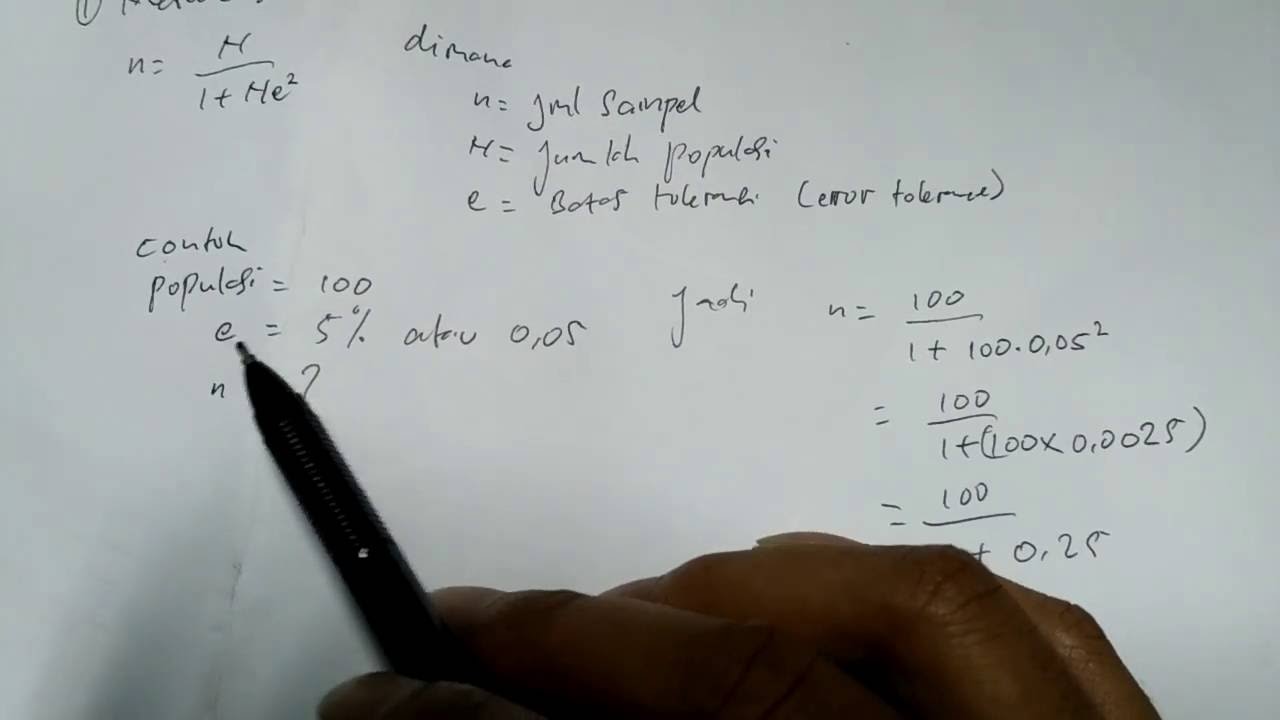 ①
n = N / 1 + Ne²
dimana
n = Jml Sampel
N = Jumlah populasi
e = Batas toleransi (error tolerance)
contoh
populasi = 100
e = 5% atau 0,05
n ?
Jadi n = 100 / 1 + 100.0,05²
= 100 / 1+(100x0,0025)
= 100 / + 0,25